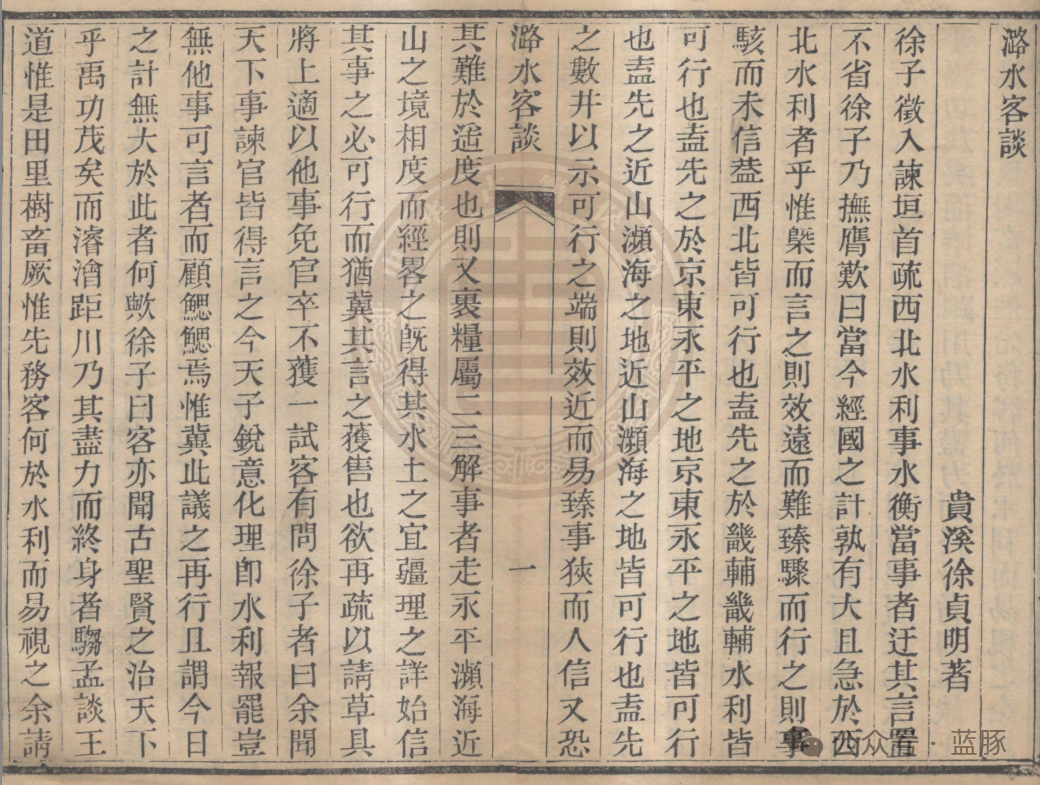 潞水客談
貴溪徐貞明著
徐子徵入諫垣首疏西北水利事水衡當事者迂其言置
不省徐子乃撫膺歎曰當今經國之計孰有大且急於西
北水利者乎惟槩而言之則效遠而難臻驟而行之則事
駭而未信葢西北皆可行也盍先之於畿輔畿輔水利皆
可行也盍先之於京東永平之地京東永平之地皆可行
也盍先之近山瀕海之地近山瀕海之地皆可行也盍先
之數井以示可行之端則效近而易臻事狹而人信又恐
潞水客談
一
其難於遥度也則又裹糧屬二三解事者走永平瀕海近
山之境相度而經畧之旣得其水土之宜疆理之詳始信
其事之必可行而猶冀其言之獲售也欲再疏以請草具
將上適以他事免官卒不獲一試客有問徐子者曰余聞
天下事諫官皆得言之今天子銳意化理卽水利報罷豈
無他事可言者而顧鰓鰓焉惟冀此議之再行且謂今日
之計無大於此者何歟徐子曰客亦聞古聖賢之治天下
乎禹功茂矣而濬澮距川乃其盡力而終身者鄒孟談王
道惟是田里樹畜厥惟先務客何於水利而易視之余請
公众号·蓝豚